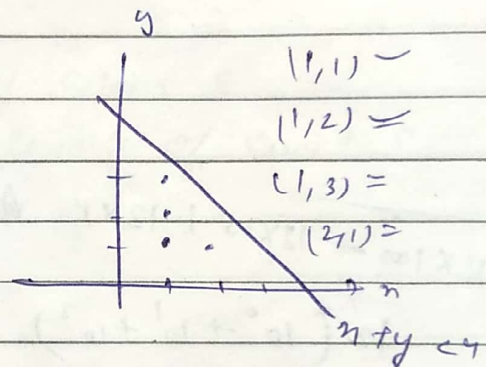 y
(1,1) -
(1,2) =
(1,3) =
(2,1) =
x
x + y < 4